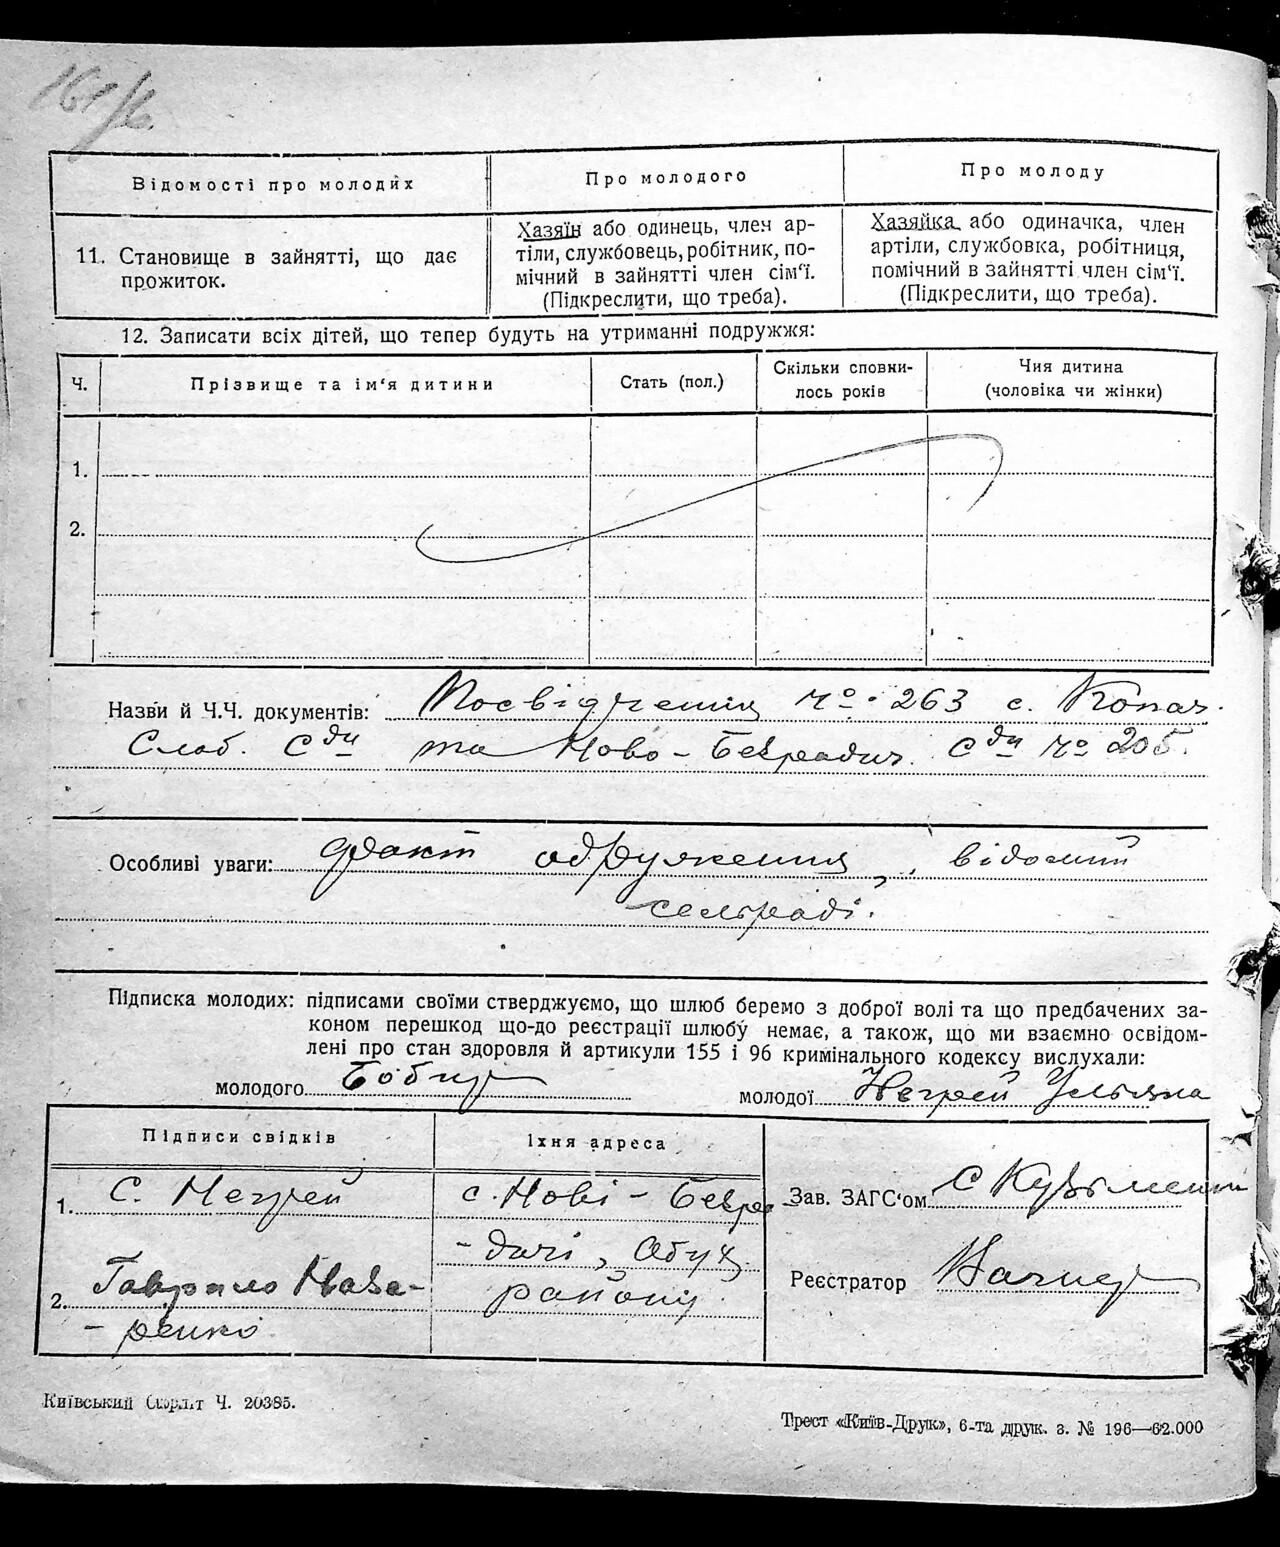 161/6.
Відомості про молодих
Про молодого
Про молоду
11. Становище в зайнятті, що дає
прожиток.
Хазяїн або одинець, член ар-
тіли, службовець, робітник, по-
мічний в зайнятті член сім'ї.
(Підкреслити, що треба).
Хазяйка або одиначка, член
артіли, службовка, робітниця,
помічний в зайнятті член сім'ї.
(Підкреслити, що треба).
12. Записати всіх дітей, що тепер будуть на утриманні подружжя:
Ч.
Прізвище та ім'я дитини
Стать (пол.)
Скільки сповни-
лось років
Чия дитина
(чоловіка чи жінки)
1.
2.
Назви й Ч.Ч. документів: Посвідчення Чо. 263 с. Копач.
Слоб. С ди та Ново-Безрадич. С ди Чо 205.
Особливі уваги: факт одруження, відомий
сельраді.
Підписка молодих: підписами своїми стверджуємо, що шлюб беремо з доброї волі та що предбачених за-
коном перешкод що-до реєстрації шлюбу немає, а також, що ми взаємно освідом-
лені про стан здоровля й артикули 155 і 96 кримінального кодексу вислухали:
молодого
молодої Негрей Ульяна
Підписи свідків
Їхня адреса
1. С. Негрей
с. Нові-Безра-
-дичі, Обух.
району
2. Гаврило Наза-
-ренко
Зав. ЗАГС'ом С Кузьменко
Реєстратор
Київський Окрліт Ч. 20385.
Трест «Київ-Друк», 6-та друк. з. № 196—62.000